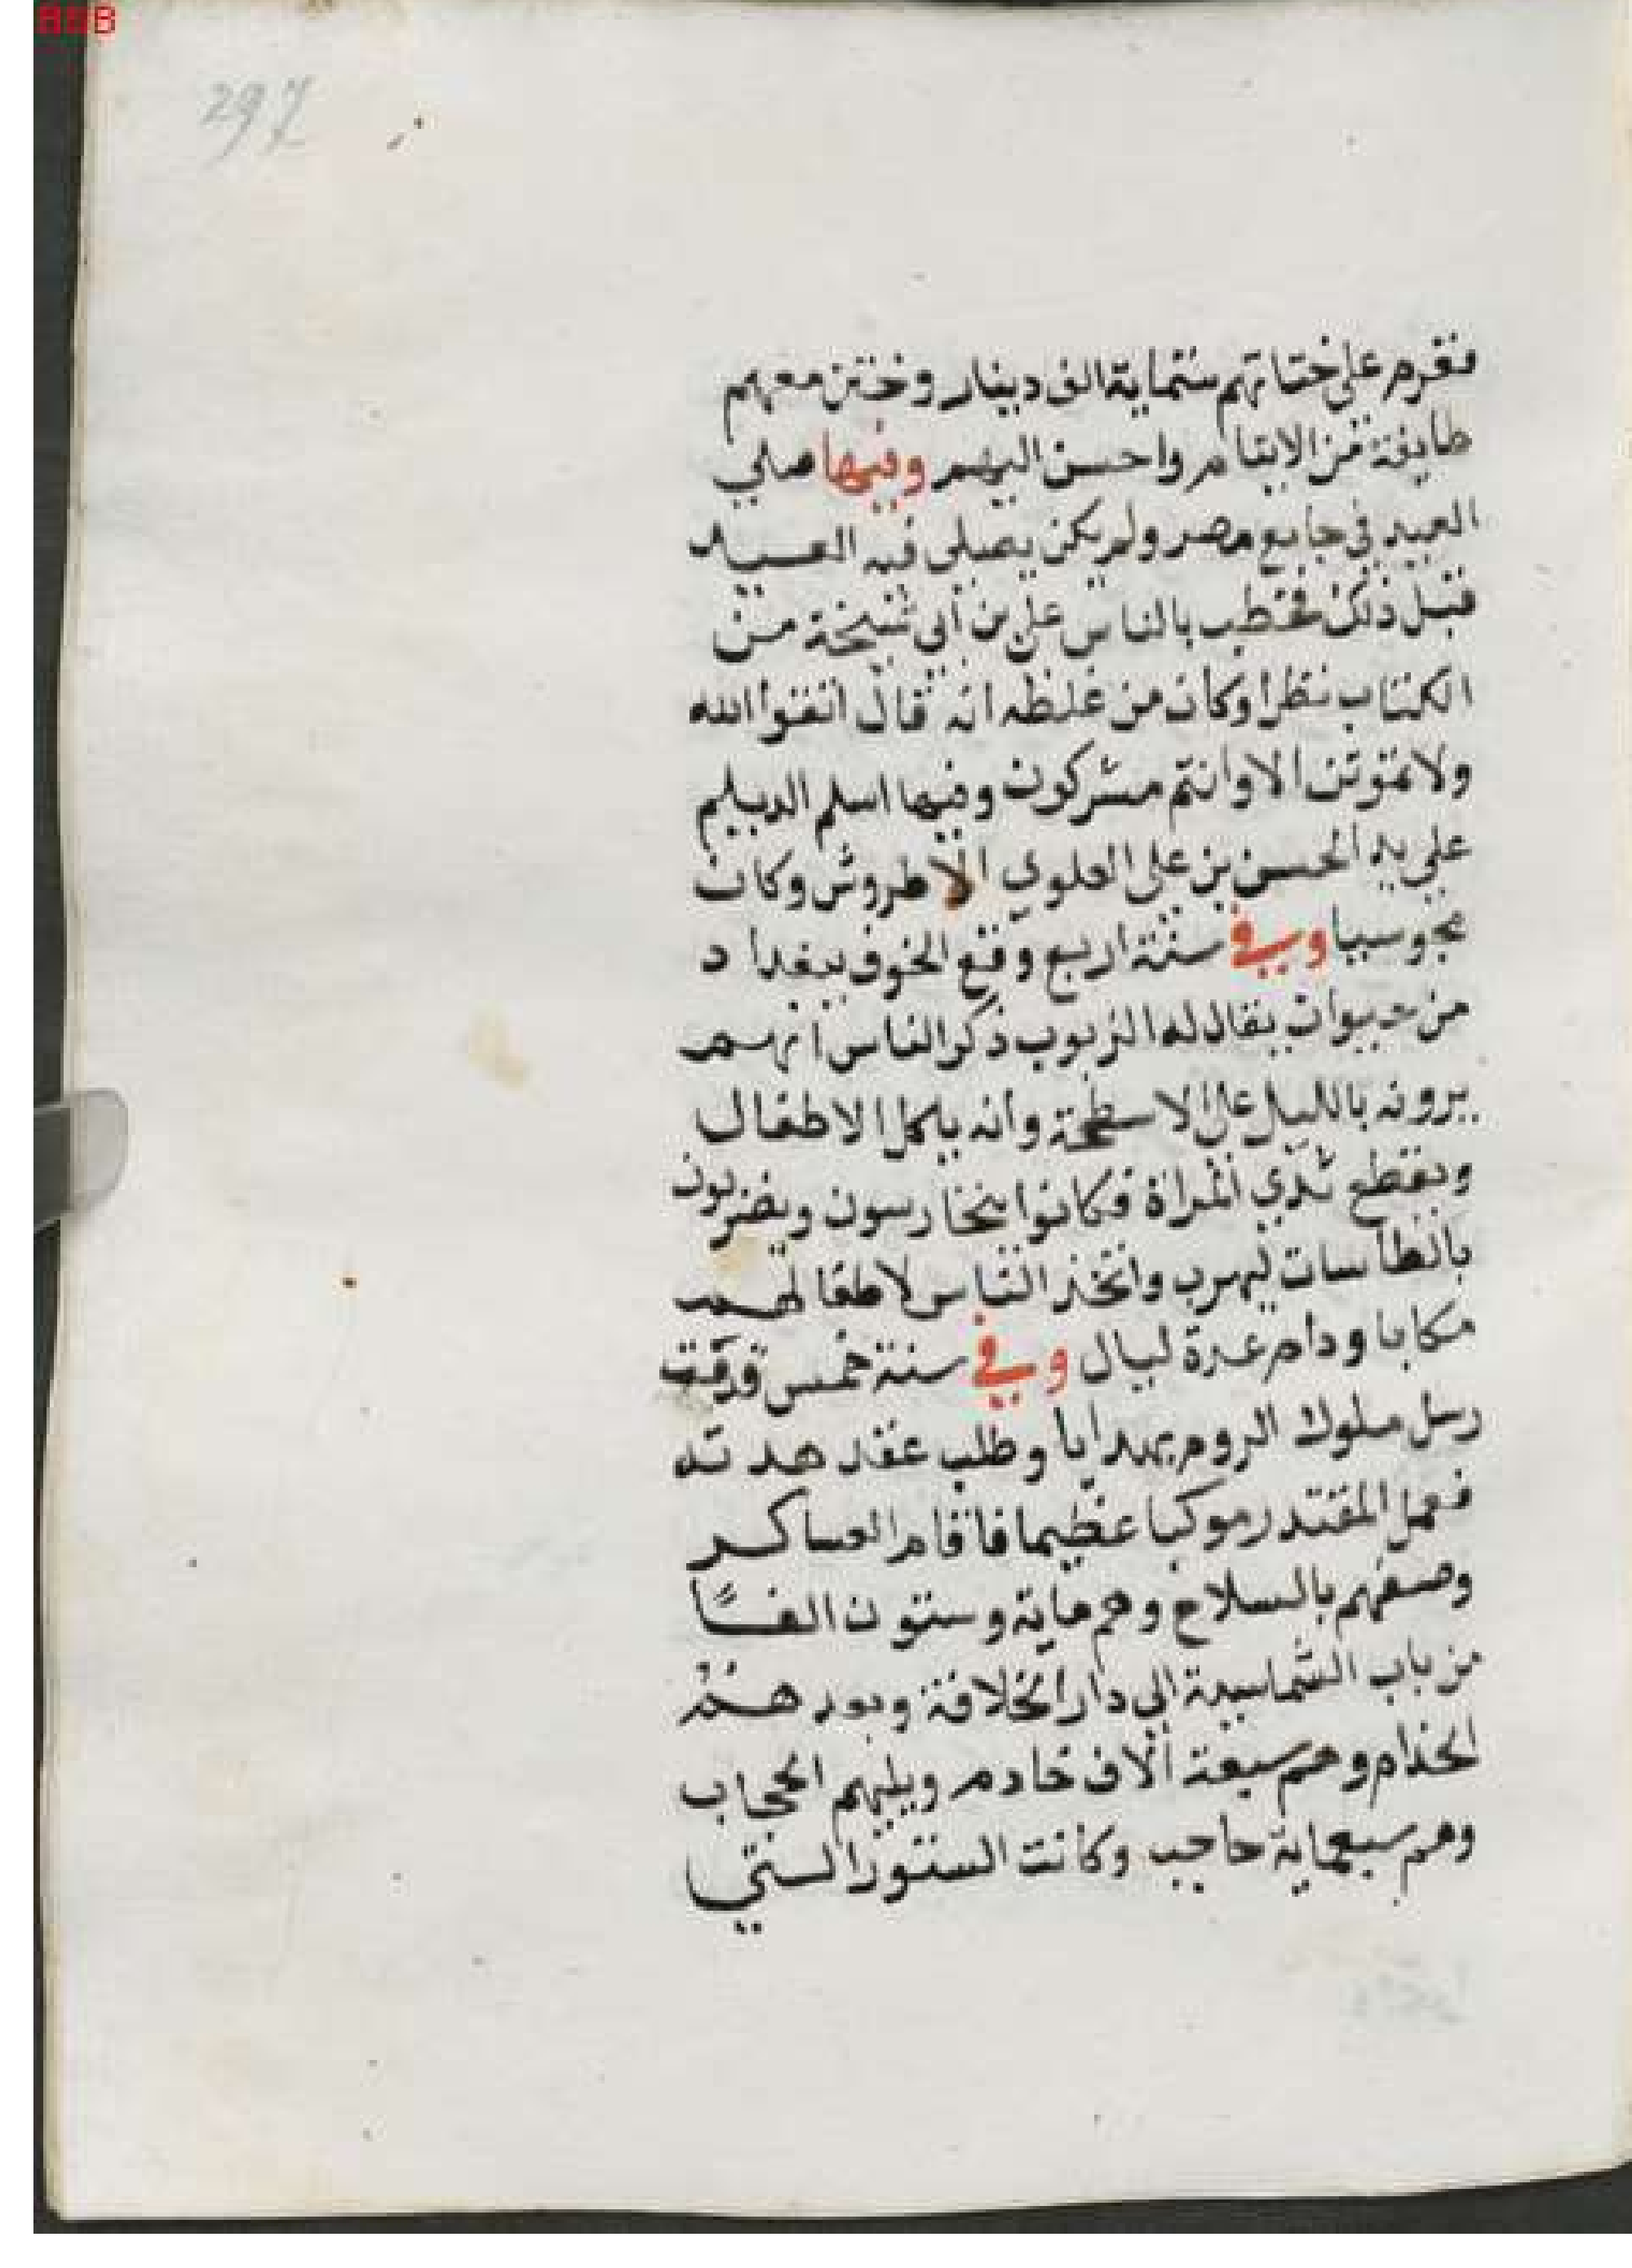 297
فغرم على ختانهم ستماية الف دينار وختن معهم
طايفة من الايتام واحسن اليهم وفيها صلي
العيد في جامع مصر ولم يكن يصلى فيه العيد
قبل ذلك فخطب بالناس علي بن أبي شيخة من
الكتاب نظرا وكان من غلطه انه قال اتقوا الله
ولا تموتن الا وانتم مشركون وفيها اسلم الديلم
علي يد الحسن بن على العلوي الاطروش وكان
مجوسيا وفي سنة اربع وقع الخوف ببغداد
من حيوان يقال له الزبوب ذكر الناس انهم
يرونه بالليل على الاسطحة وانه ياكل الاطفال
ويقطع ثدي المراة فكانوا يتحارسون ويضربون
بالطاسات ليهرب واتخذ الناس لاطفالهم
مكابا ودام عدة ليال وفي سنة خمس قدمت
رسل ملوك الروم بهدايا وطلب عقد هدنه
فعمل المقتدر موكبا عظيما فاقام العساكر
وصفهم بالسلاح وهم ماية وستون الفًا
من باب الشماسية الى دار الخلافة وبعدهم
الخدام وهم سبعة آلاف خادم ويليهم الحجاب
وهم سبعماية حاجب وكانت الستور التي